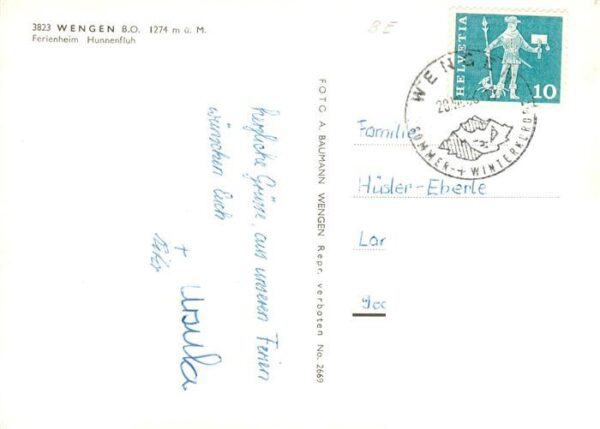 3823 WENGEN B.O. 1274 m ü. M.
Ferienheim Hunnenfluh
BE
HELVETIA
10
WENGEN
SOMMER- + WINTERKURORT
FOTO A. BAUMANN WENGEN Repr. verboten No. 2669
herzliche Grüsse, aus unseren Ferien
wünschen Euch
+ Ursula
Familie
Hüsler-Eberle